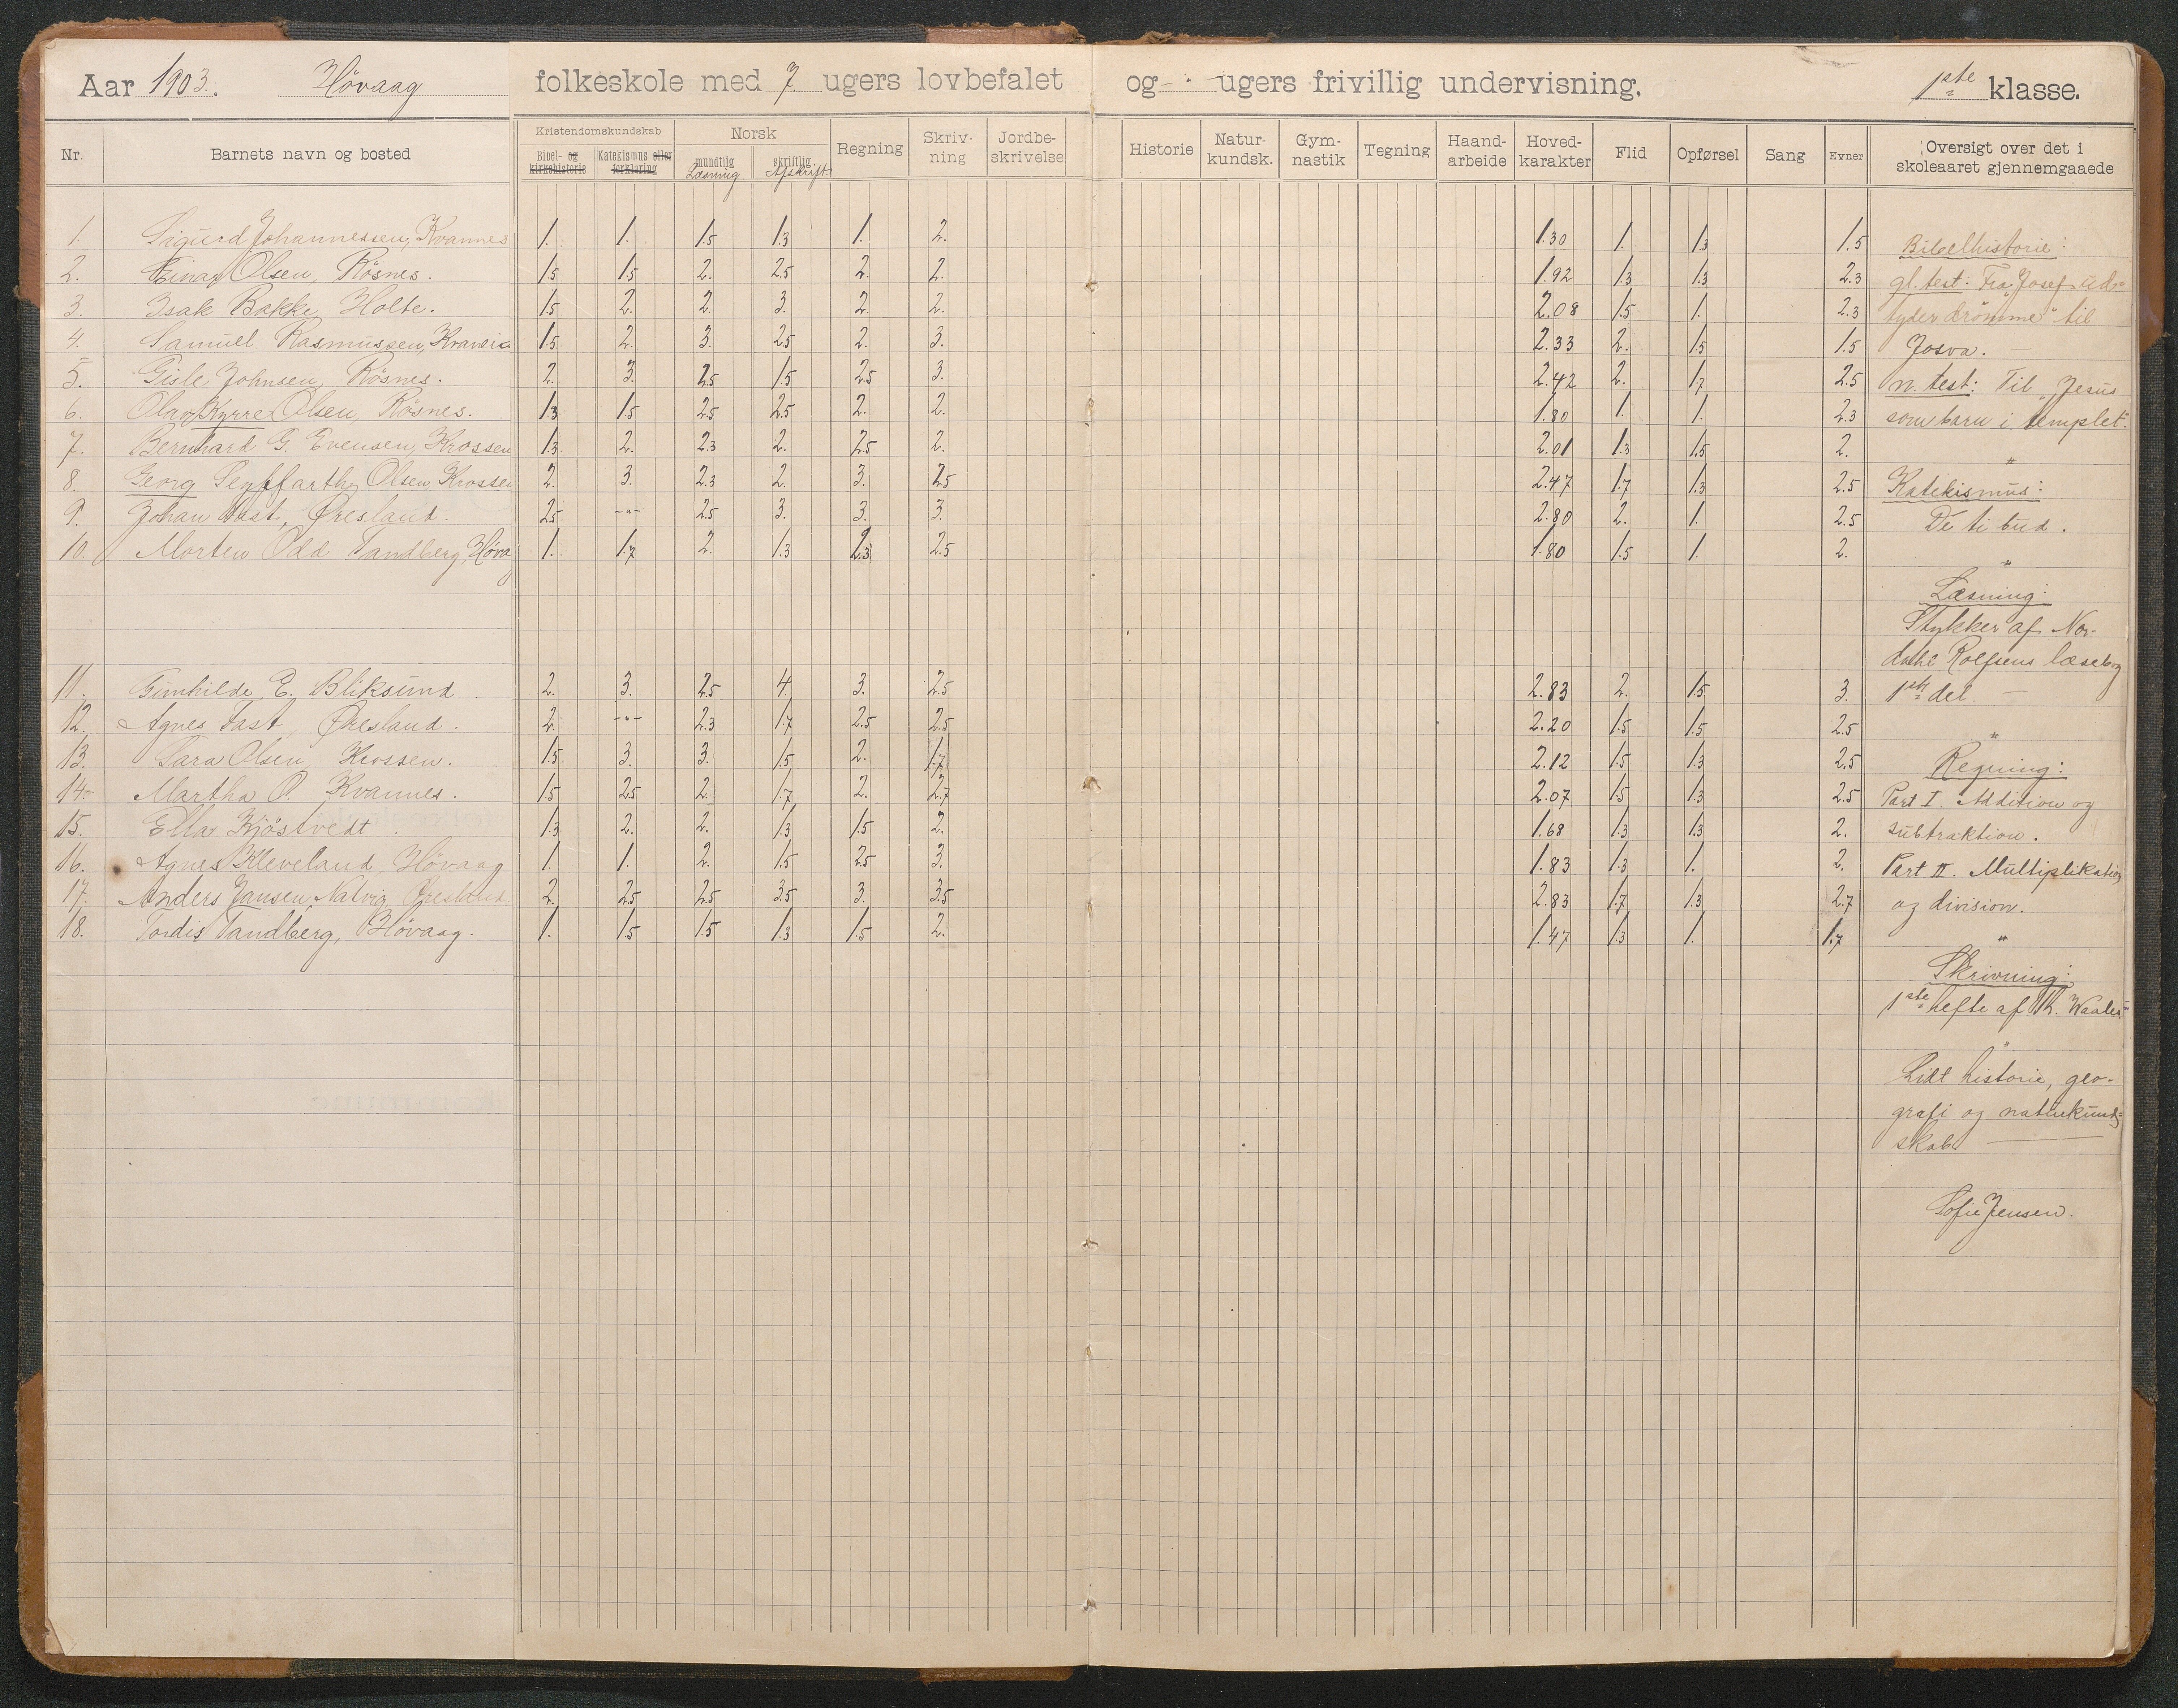 Aar 1903. Høvaag folkeskole med 7 ugers lovbefalet og - ugers frivillig undervisning. 1ste klasse.
Nr. Barnets navn og bosted Kristendomskundskab Norsk Regning Skriv-ning Jordbe-skrivelse Historie Natur-kundsk. Gym-nastik Tegning Haand-arbeide Hoved-karakter Flid Opførsel Sang Evner Oversigt over det i skoleaaret gjennemgaaede
Bibel- og kirkehistorie Katekismus eller forklaring mundtlig Læsning skriftlig Afskrift
1. Sigurd Johannessen, Kvannes 1. 1. 1.5 1.3 1. 2. 1.30 1. 1.3 1.5
2. Einar Olsen, Røsnes. 1.5 1.5 2. 2.5 2. 2. 1.92 1.3 1.3 2.3
3. Isak Bakke, Holte. 1.5 2. 2. 3. 2. 2. 2.08 1.5 1. 2.3
4. Samuel Rasmussen, 1.5 2. 3. 2.5 2. 3. 2.33 2. 1.5 1.5
5. Gisle Johnsen, Røsnes. 2. 3. 2.5 1.5 2.5 3. 2.42 2. 1.7 2.5
6. Olav Kyrre Olsen, Røsnes. 1.3 1.5 2.5 2.5 2. 2. 1.80 1. 1. 2.3
7. Bernhard G. Evensen, Krossen 1.3 2. 2.3 2. 2.5 2. 2.01 1.3 1.5 2.
8. Georg Seyffarth Olsen Krossen 2. 3. 2.3 2. 3. 2.5 2.47 1.7 1.3 2.5
9. Johan Fast, Øresland. 2.5 -"- 2.5 3. 3. 3. 2.80 2. 1. 2.5
10. Morten Odd Tandberg, Høvaag 1. 1.7 2. 1.3 2.3 2.5 1.80 1.5 1. 2.
11. Gunhilde E. Bliksund 2. 3. 2.5 4. 3. 2.5 2.83 2. 1.5 3.
12. Agnes Fast, Øresland. 2. -"- 2.3 1.7 2.5 2.5 2.20 1.5 1.5 2.5
13. Sara Olsen, Krossen. 1.5 3. 3. 1.5 2. 1.7 2.12 1.5 1.3 2.5
14. Martha O. Kvannes. 1.5 2.5 2. 1.7 2. 2.7 2.07 1.5 1.3 2.5
15. Ella Kjøstvedt. 1.3 2. 2. 1.3 1.5 2. 1.68 1.3 1.3 2.
16. Agnes Kleveland, Høvaag 1. 1. 2. 1.5 2.5 3. 1.83 1.3 1. 2.
17. Anders Jansen Natvig, Øresland 2. 2.5 2.5 3.5 3. 3.5 2.83 1.7 1.3 2.7
18. Tordis Tandberg, Høvaag. 1. 1.5 1.5 1.3 1.5 2. 1.47 1.3 1. 1.7
Bibelhistorie:
gl. test: Fra "Josef ud-
tyder drømme" til
Josva. -
n. test: Til "Jesus
som barn i templet".
"
Katekismus:
De ti bud.
"
Læsning:
Stykker af Nor-
dahl Rolfsens læsebog
1ste del. -
"
Regning:
Part I. Addition og
subtraktion.
Part II. Multiplikation
og division.
"
Skrivning:
1ste hefte af Th. Waaler
"
Lidt historie, geo-
grafi og naturkund-
skab
Sofie Jensen.